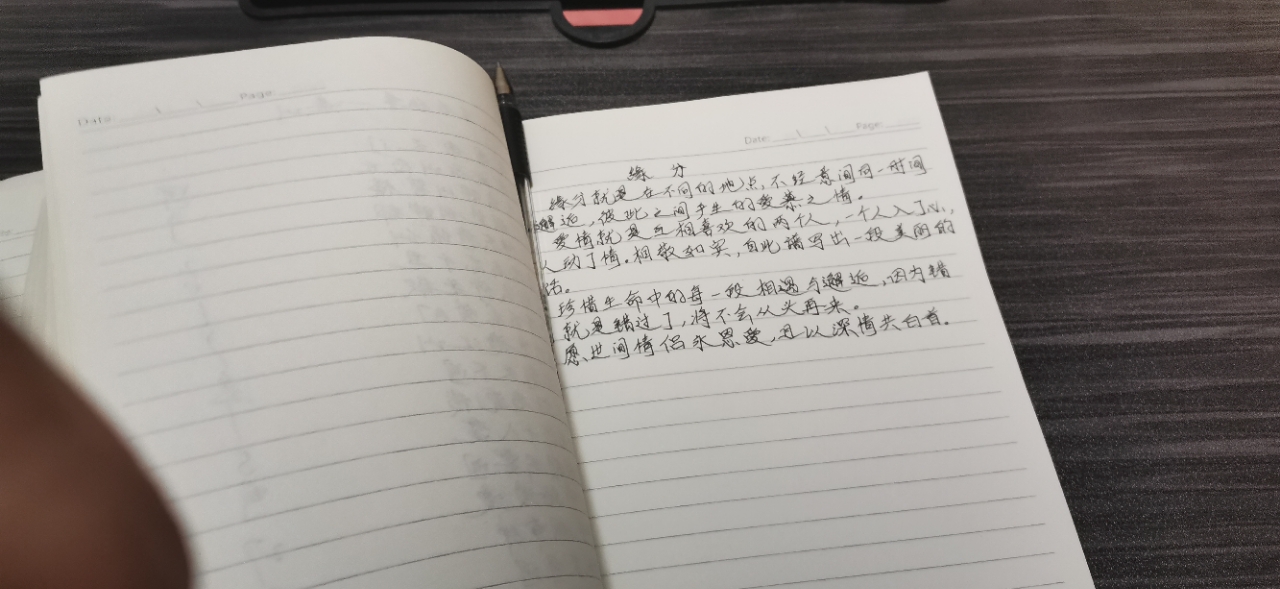 Date: Page:
Date: Page:
缘 分
缘分就是在不同的地点,不经意间同一时间
邂逅,彼此之间产生的爱慕之情。
爱情就是互相喜欢的两个人,一个人入了心,
人动了情。相敬如宾,自此谱写出一段美丽的
话。
珍惜生命中的每一段相遇与邂逅,因为错
就是错过了,将不会从头再来。
愿世间情侣永恩爱,且以深情共白首。